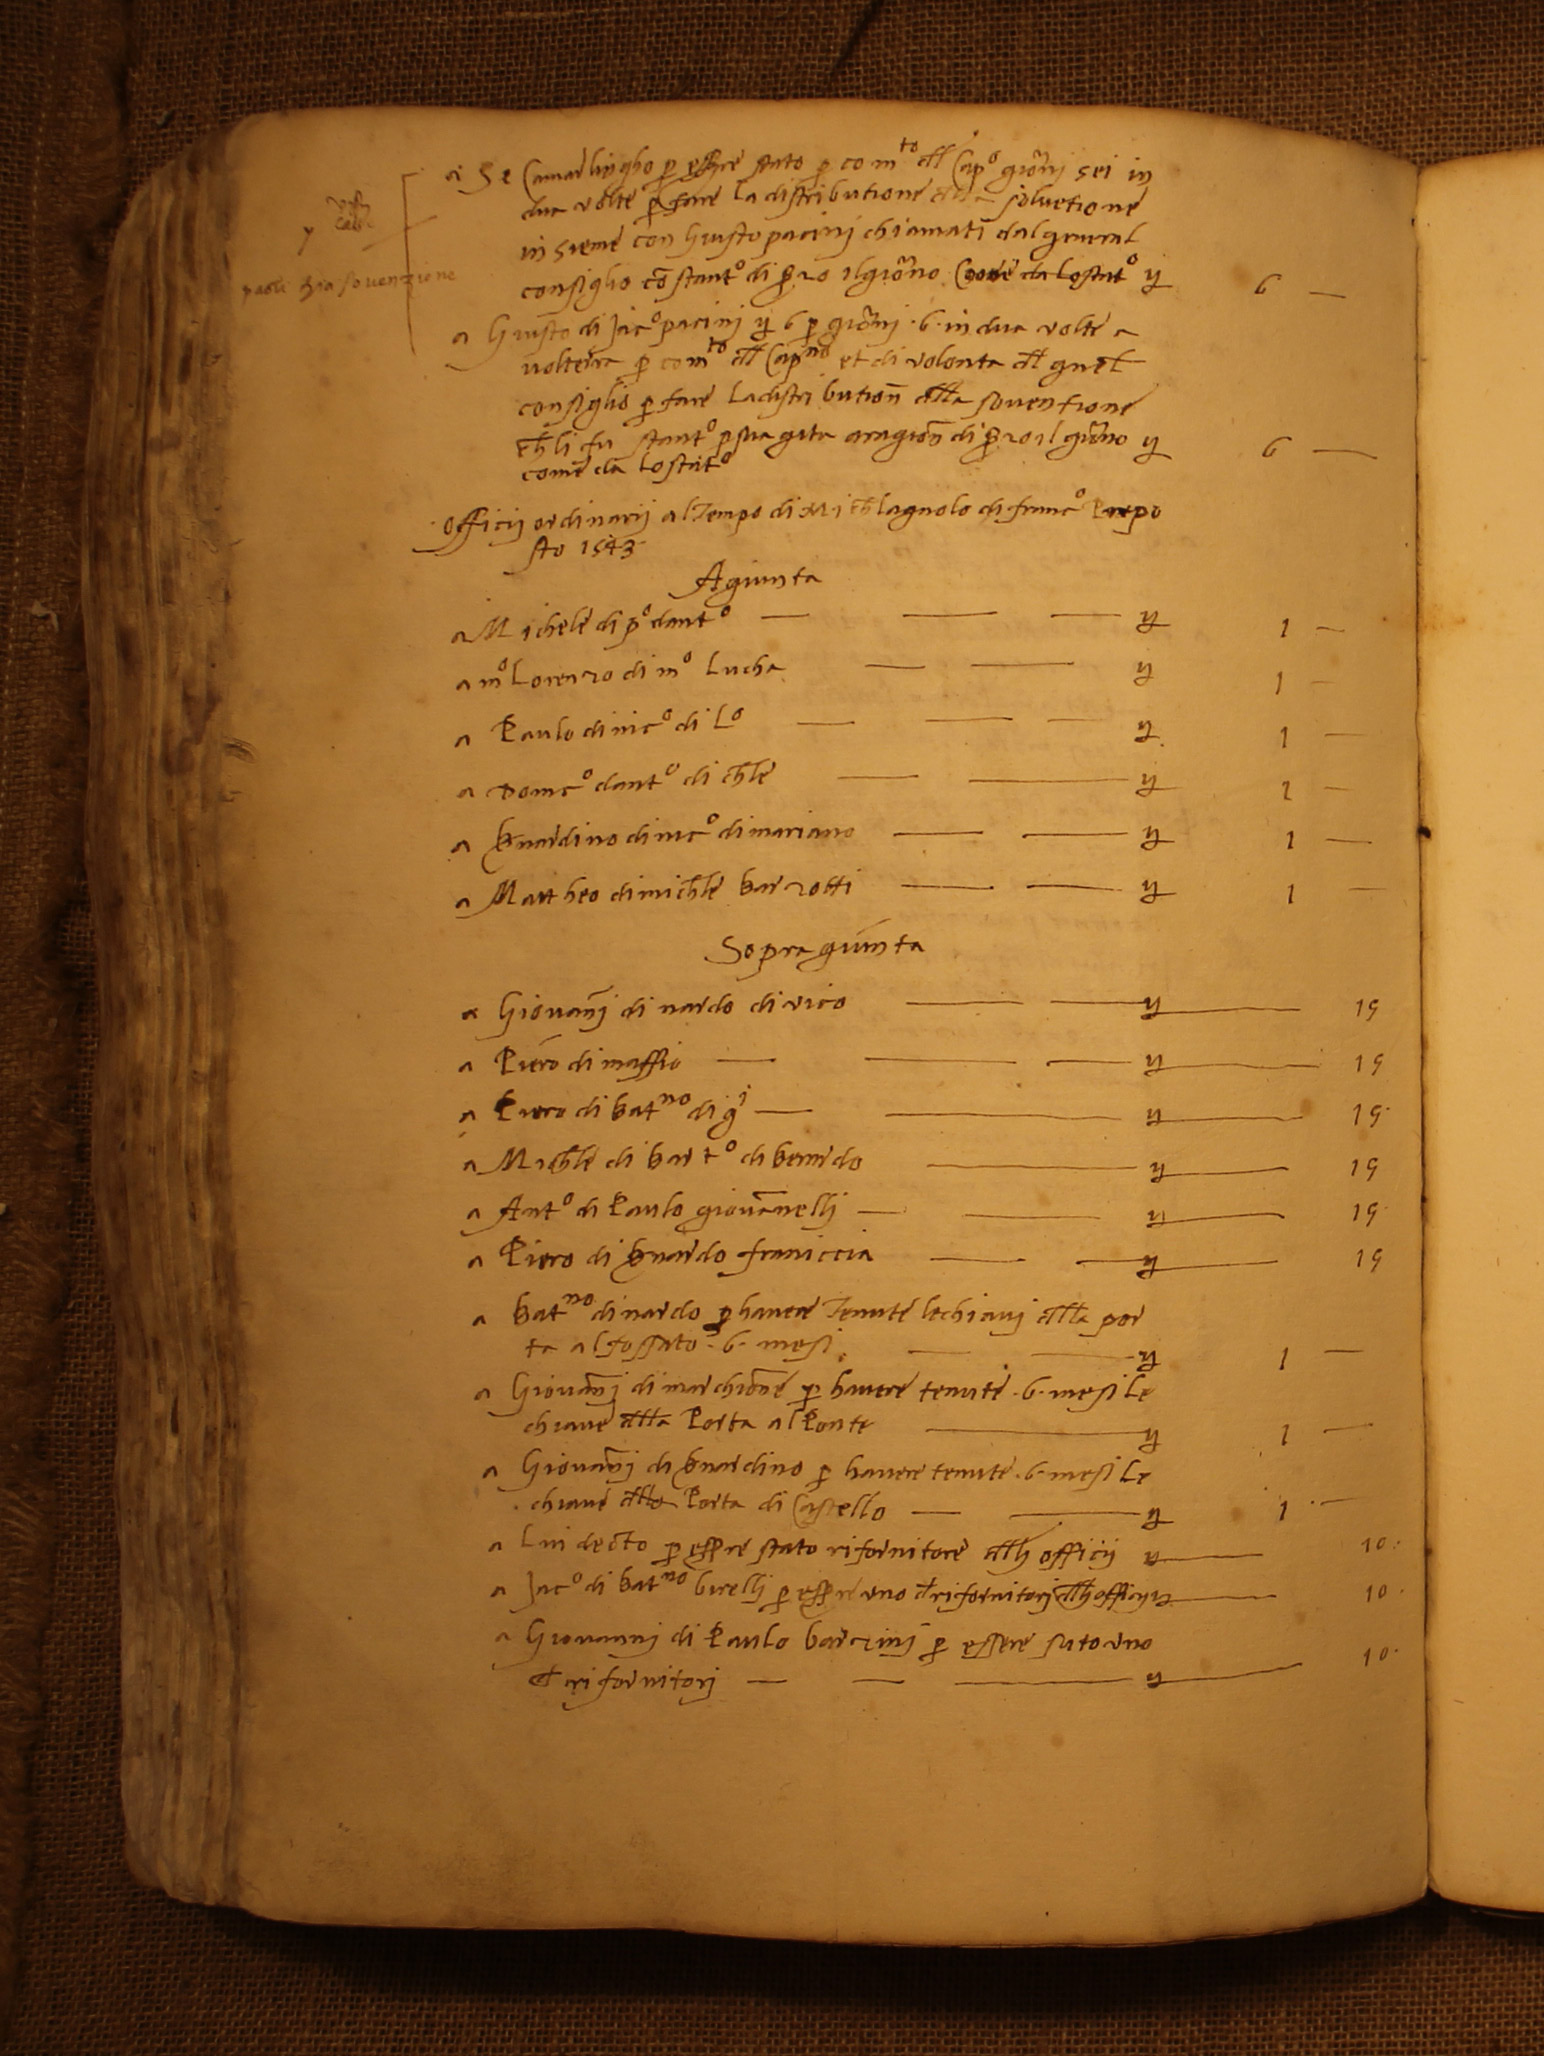 a Se Camarlingho p essere stato p comto dll Capo giorni sei in
dua volte p fare la distributione della solvetione
insieme con Giusto pacini chiamati dal general
consiglio co stanto di ß ro il giorno Come da lo stanto
6 —
paoli sovenzione
a Giusto di Jaco pacini 6 p giorni · 6 · in dua volte a
volterra p comto dll Capno et di volonta dl gnel
consiglio p fare la distribution dlla soventione
chli fu stanto p sua gita a ragion di ro il giorno
6 —
come da lo stanto
Officij ordinarij al Tempo di Michlagnolo di franco Prepo
sto 1543
Agiunta
a Michele di po danto — — — 1 —
a mo Lorenzo di mo Lucha — — 1 —
a Paulo di nico di Lo — — — 1 —
a Domco danto di chle — — 1 —
a bnardino di nico di mariano — — 1 —
a Mattheo di michle barzotti — — 1 —
Sopragiunta
a Giovanj di nardo di vico — — 15
a Piero di maffio — — — 15
a Piero di batno di gi — — 15
a Michle di barto di benardo — 15
a Anto di Paulo giovanellj — — 15
a Piero di bnardo franiccia — — 15
a batno di nardo p havere Tenute le chiavj dlla por
ta al fossato · 6 · mesi — — 1 —
a Giovanj di marchione p havere tenute · 6 · mesi le
chiave dlla Porta al Ponte — 1 —
a Giovanj di bnardino p havere tenute · 6 · mesi le
chiave dlla Porta di Castello — — 1 —
a Lui decto p essere stato rifornitore dllj officij — 10
a Jaco di batno burellj p essere uno d rifornitorj dllj officij — 10
a Giovannj di Paulo barzinj p essere stato uno
d rifornitorj — — — 10